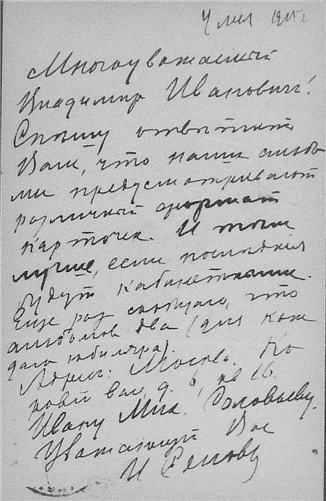 4 мая 1915 г
Многоуважаемый
Владимир Иванович!
Спешу ответить
Вам, что наши альбо
мы предусматривают
различный формат
карточек. И тем
лучше, если последния
будут кабинетными.
Еще раз сообщаю, что
альбомов два (для каж
даго юбиляра).
Адрес: Москва. По
вал д. 6, кв 16.
Ивану Мих. Соловьеву.
Уважающий Вас
И